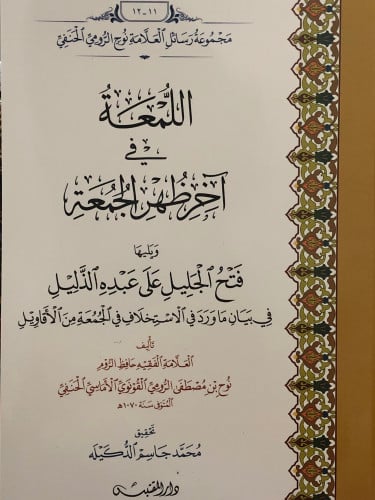 ١١-١٢
مَجْمُوعَةُ رَسَائِلِ الْعَلَّامَةِ نُوحٍ الرُّومِيِّ الْحَنَفِيِّ
اللُّمْعَةُ
فِي
آخِرِ ظُهْرِ الْجُمُعَةِ
وَيَلِيهَا
فَتْحُ الْجَلِيلِ عَلَى عَبْدِهِ الذَّلِيلِ
فِي بَيَانِ مَا وَرَدَ فِي الِاسْتِخْلَافِ فِي الْجُمُعَةِ مِنَ الْأَقَاوِيلِ
تَأْلِيفُ
الْعَلَّامَةِ الْفَقِيهِ حَافِظِ الرُّومِ
نُوحِ بْنِ مُصْطَفَى الرُّومِيِّ الْقُونَوِيِّ الْأَمَاسِيِّ الْحَنَفِيِّ
الْمُتَوَفَّى سَنَةَ ١٠٧٠هـ
تَحْقِيقُ
مُحَمَّد جَاسِم الدُّكَيْلَه
دار المقتبس